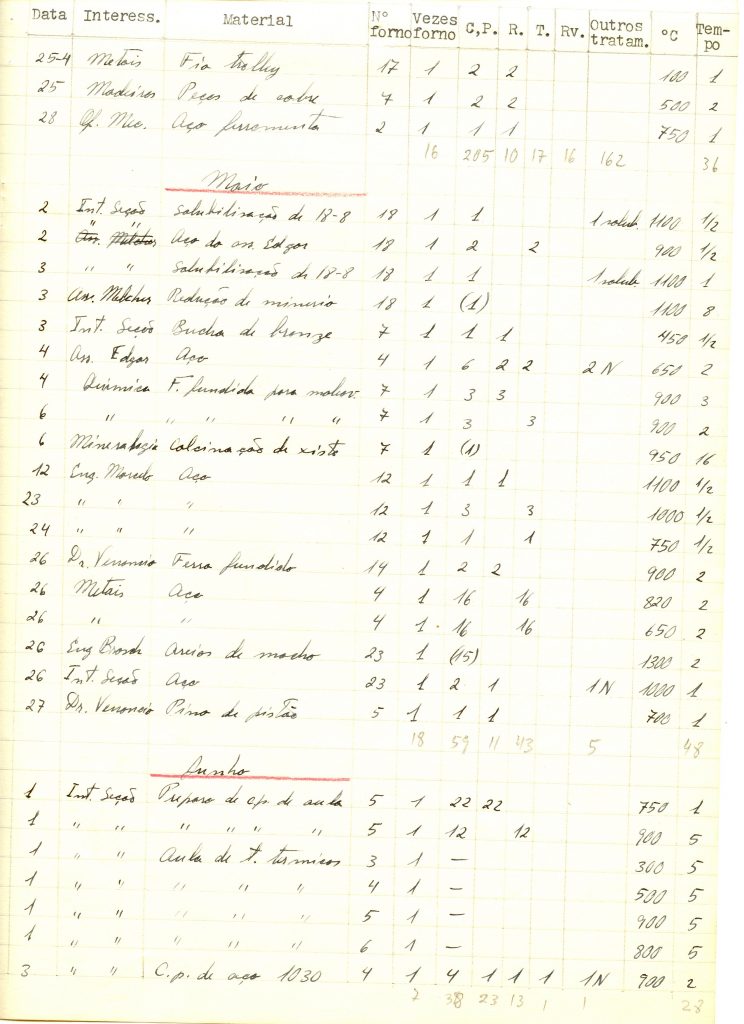 Data Interess. Material Nº forno Vezes forno C.P. R. T. Rv. Outros tratam. °C Tempo
25-4 Metais Fio trolley 17 1 2 2 100 1
25 Madeiras Peças de cobre 7 1 2 2 500 2
28 Of. Mec. Aço ferramenta 2 1 1 1 750 1
16 205 10 17 16 162 36
Maio
2 Int. Seção Solubilização de 18-8 18 1 1 1 solub. 1100 1/2
2 " " Aço do ass. Edgar 18 1 2 2 900 1/2
3 " " Solubilização de 18-8 18 1 1 1 solub 1100 1
3 Ass. Melcher Redução de minerio 18 1 (1) 1100 8
3 Int. Seção Bucha de bronze 7 1 1 1 450 1/2
4 Ass. Edgar Aço 4 1 6 2 2 2 N 650 2
4 Quimica F. fundido para 7 1 3 3 900 3
6 " " " " " 7 1 3 3 900 2
6 Mineralogia Calcinação de xisto 7 1 (1) 950 16
12 Eng. Marcelo Aço 12 1 1 1 1100 1/2
23 " " " 12 1 3 3 1000 1/2
24 " " " 12 1 1 1 750 1/2
26 Dr. Venancio Ferro fundido 14 1 2 2 900 2
26 Metais Aço 4 1 16 16 820 2
26 " " 4 1 16 16 650 2
26 Eng Areias de macho 23 1 (15) 1300 2
26 Int. Seção Aço 23 1 2 1 1 N 1000 1
27 Dr. Venancio Pino de pistão 5 1 1 1 700 1
18 59 11 43 5 48
Junho
1 Int. Seção Preparo de c.p. de aula 5 1 22 22 750 1
1 " " " " " " 5 1 12 12 900 5
1 " " Aula de t. termicos 3 1 — 300 5
1 " " " " " 4 1 — 500 5
1 " " " " " 5 1 — 900 5
1 " " " " " 6 1 — 800 5
3 " " C.p. de aço 1030 4 1 4 1 1 1 1 N 900 2
7 38 23 13 1 1 28